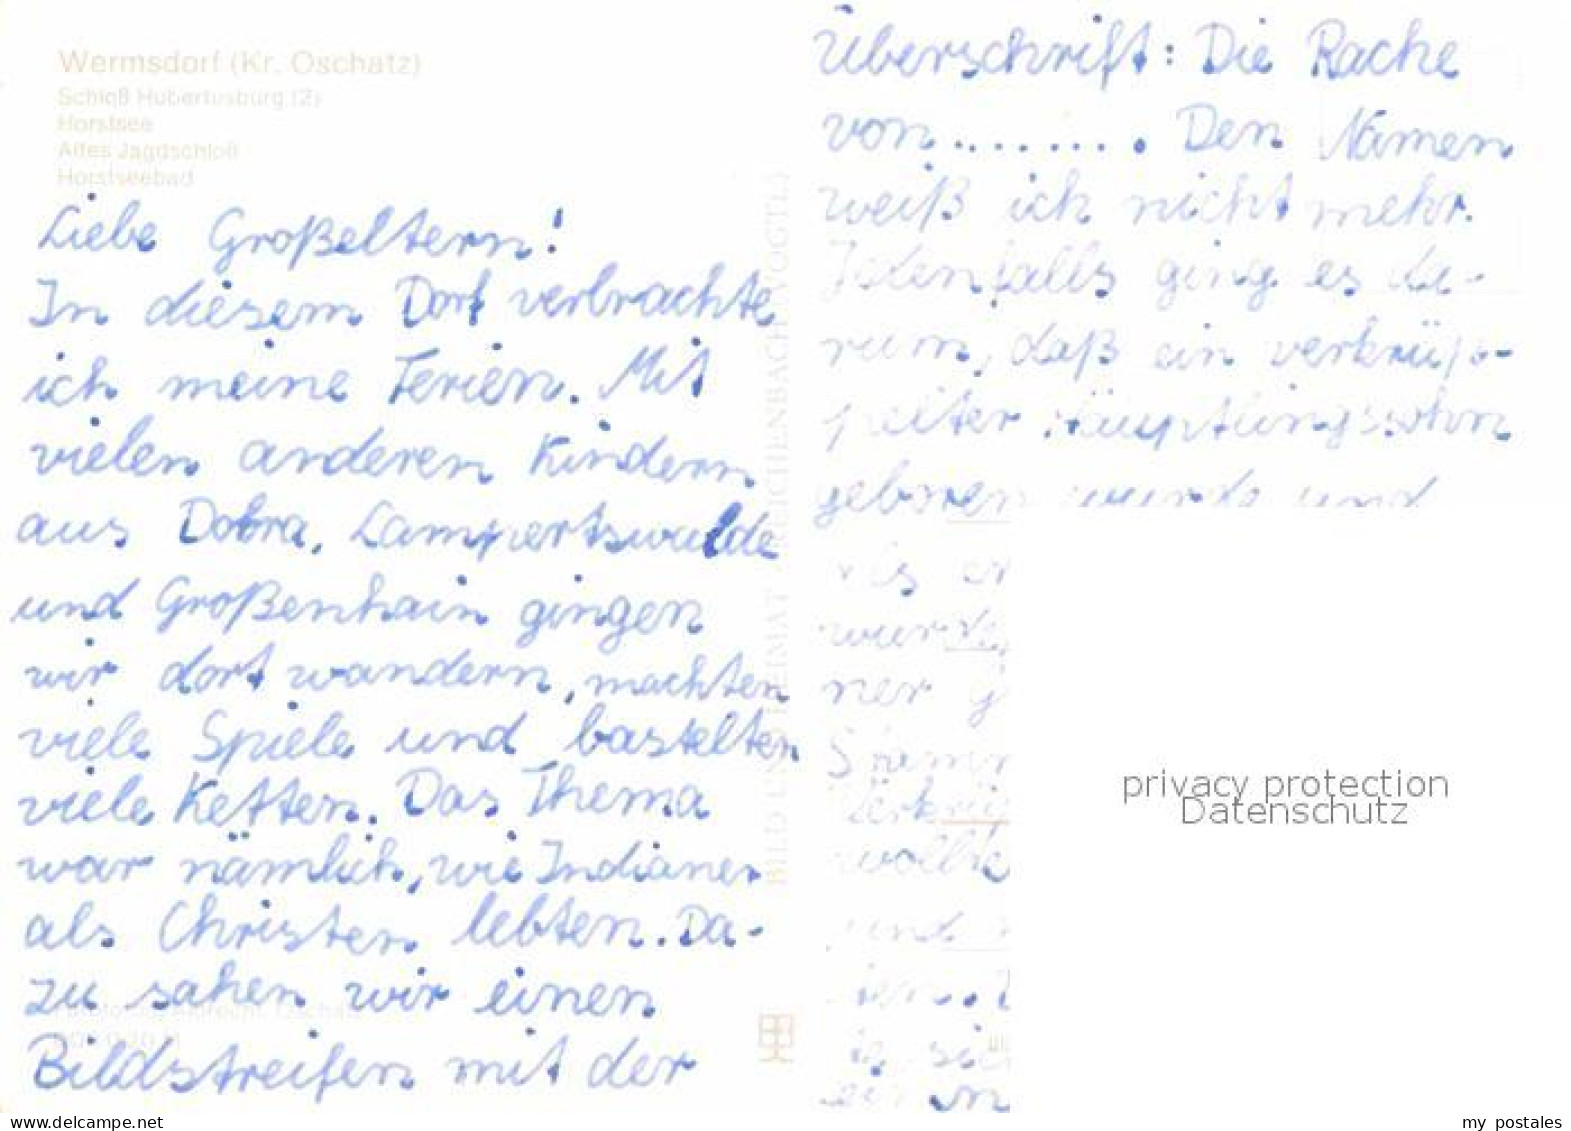 Wermsdorf (Kr. Oschatz)
Schloß Hubertusburg (2)
Horstsee
Altes Jagdschloß
Horstseebad
Liebe Großeltern!
In diesem Dorf verbrachte
ich meine Ferien. Mit
vielen anderen Kindern
aus Dobra, Lampertswalde
und Großenhain gingen
wir dort wandern, machten
viele Spiele und bastelten
viele Ketten. Das Thema
war nämlich, wie Indianer
als Christen lebten. Da-
zu sahen wir einen
Bildstreifen mit der
BILD UND HEIMAT REICHENBACH (VOGTL)
Überschrift: Die Rache
von ........ Den Namen
weiß ich nicht mehr.
Jedenfalls ging es da-
rum, daß ein verkrüp-
pelter Häuptlingssohn
geboren wurde und
als er
wurde,
ner g
wollte
und
privacy protection
Datenschutz
www.delcampe.net
my_postales